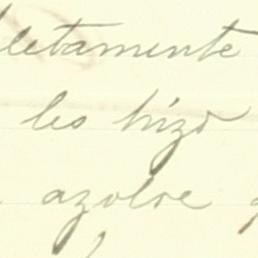 pletamente
les hizo
azolve